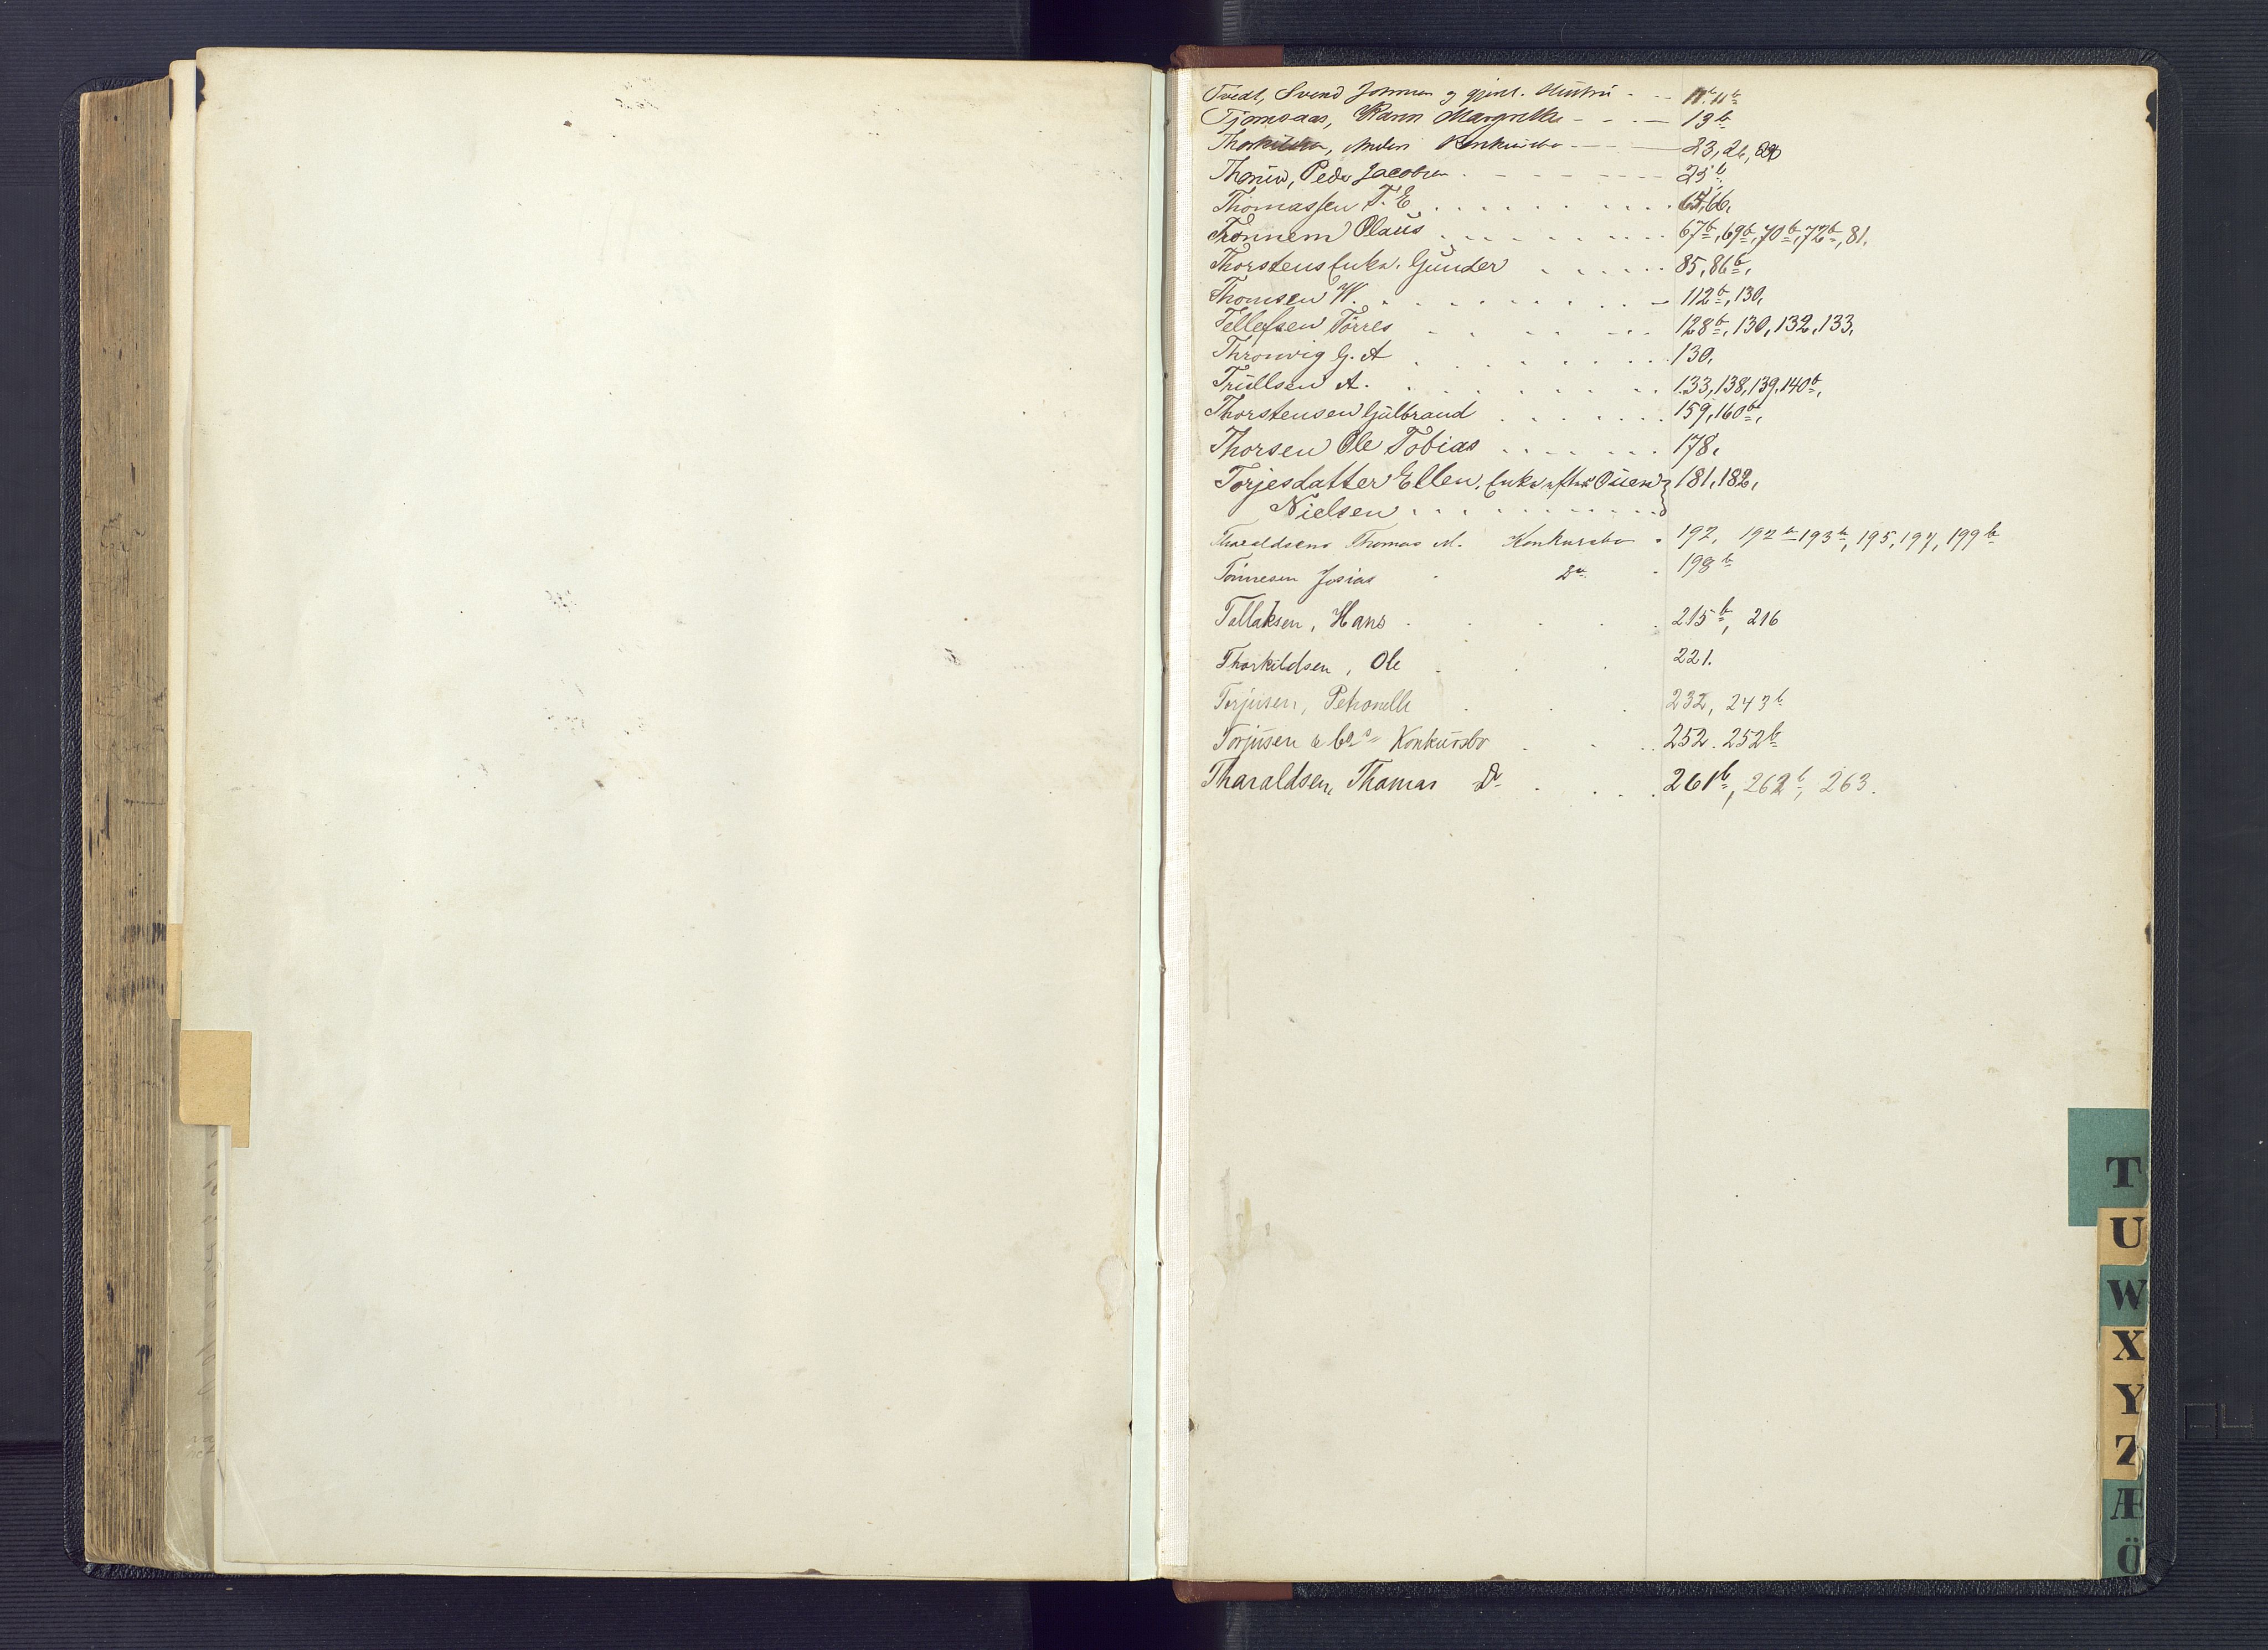 Tvedt, Svend Johnsen og gjenl. Hustru - - - 11, 11b
Tjomsaas, Karen Margrethe - - - 19b
Thorkildsen, Konkursbo - - - 23, 26,
Peder Jacobsen - - - 25b
Thomassen T. E. . . . 65, 66,
Tronnem Olaus . . . 67b, 69b, 70b, 72b, 81.
Thorstens Enke. Gunder . . . 85, 86b,
Thomsen W. . . . 112b, 130,
Tellefsen Törres . . . 128b, 130, 132, 133,
Thronvig G. A . . . 130,
Trullsen A. . . . 133, 138, 139, 140b,
Thorstensen Gulbrand . . . 159, 160b,
Thorsen Ole Tobias . . . 178,
Torjesdatter Ellen, Enke efter Ouen 181, 182,
Nielsen . . .
Tharaldsens Thomas M. Konkursbo . 192, 192b 193b, 195, 197, 199b
Tönnesen Josias . Do . 198b
Tallaksen, Hans . . . 215b, 216
Thorkildsen, Ole . . . 221.
Torjusen, Petronelle . . . 232, 243b
Torjusen & Co's Konkursbo . . . 252. 252b
Tharaldsen, Thomas Do . . . 261b, 262b, 263.
T
U
W
X
Y
Z
Æ
Ö